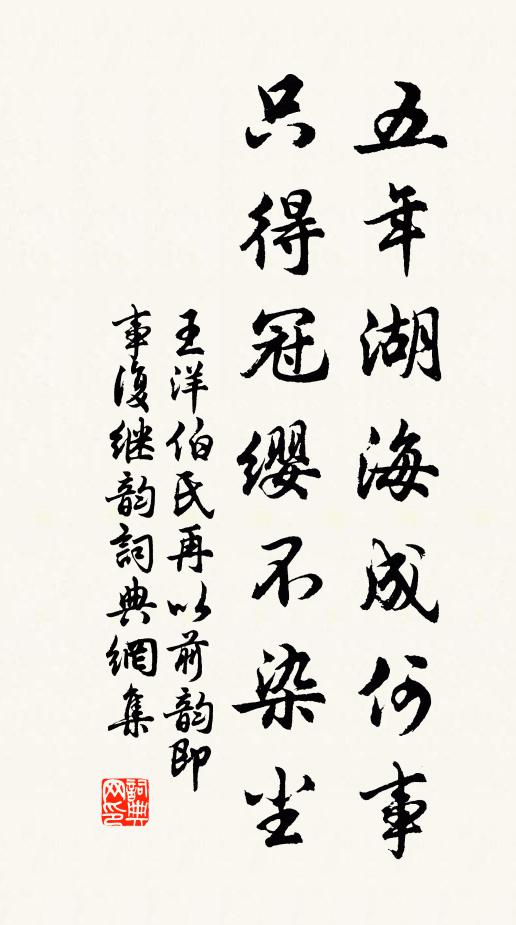 五年湖海成何事
只得冠缨不染尘
王洋伯氏再以前韵即
事复继韵詞典網集
詞典
网印